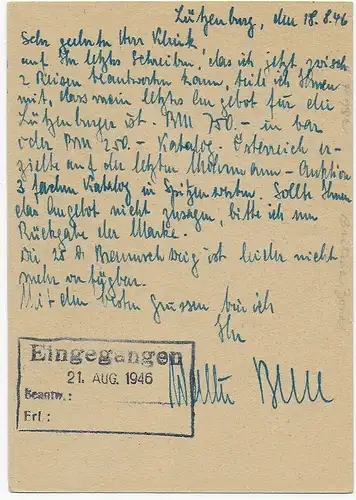 Lützenburg, den 18.8.46
Sehr geehrter Herr Klink
auf Ihr letztes Schreiben, das ich jetzt zwisch
2 Reisen beantworten kann, teile ich Ihnen
mit, dass mein letztes Angebot für die
Lützenburger ist. RM 750.- in bar
oder RM 250.- Katalog. Österreich er-
zielte auf der letzten Mohrmann-Auktion
3 fachen Katalog in Spitzenwerten. Sollte Ihnen
das Angebot nicht zusagen, bitte ich um
Rückgabe der Marke.
Die Braunschweig ist leider nicht
mehr verfügbar.
Mit den besten Grüssen bin ich
Ihr
Walter
Eingegangen
21. AUG. 1946
Beantw.:
Erl.: